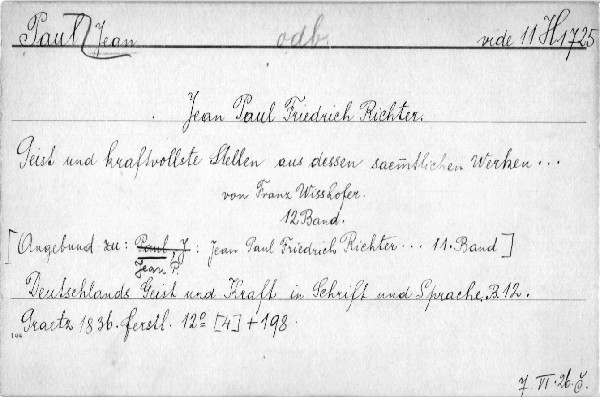 Paul Jean odb. vide 11 H 1725
Jean Paul Friedrich Richter.
Geist und kraftvollste Stellen aus dessen saem̅tlichen Werken...
von Franz Wisshofer.
12 Band.
[Angebund zu: Paul, J : Jean Paul Friedrich Richter... 11. Band]
Jean P.
Deutschlands Geist und Kraft in Schrift und Sprache, B 12.
Graetz 1836. Ferstl. 12º [4] + 198.
7 VI. 26. Č.